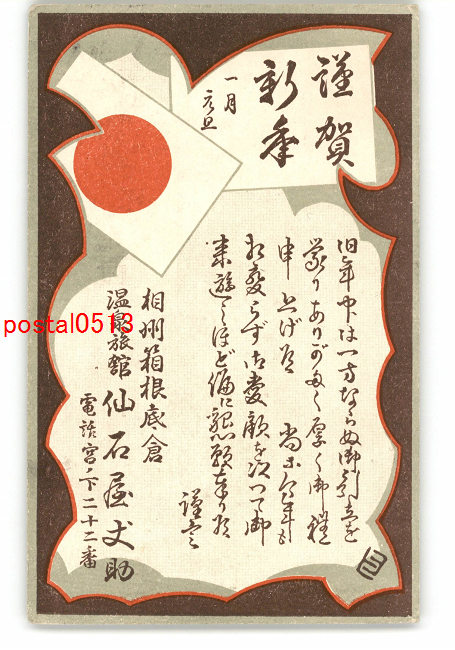 謹賀
新年
一月
元旦
旧年中は一方ならぬ御引立を
蒙りありがたく厚く御禮
申上げ候 尚本年も
相変らず御愛顧を以つて御
来遊之ほど偏に懇願奉り候
謹言
相州箱根底倉
温泉旅舘 仙石屋丈助
電話宮ノ下二十二番
postal0513